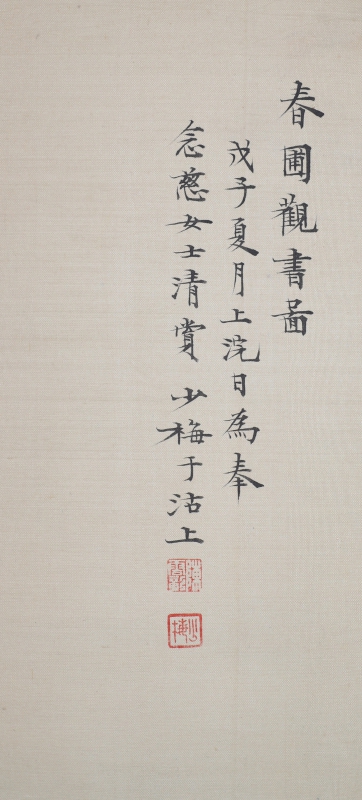 春圃觀書啚
戊子夏月上浣日為奉
念慈女士清賞 少梅于沽上
少梅